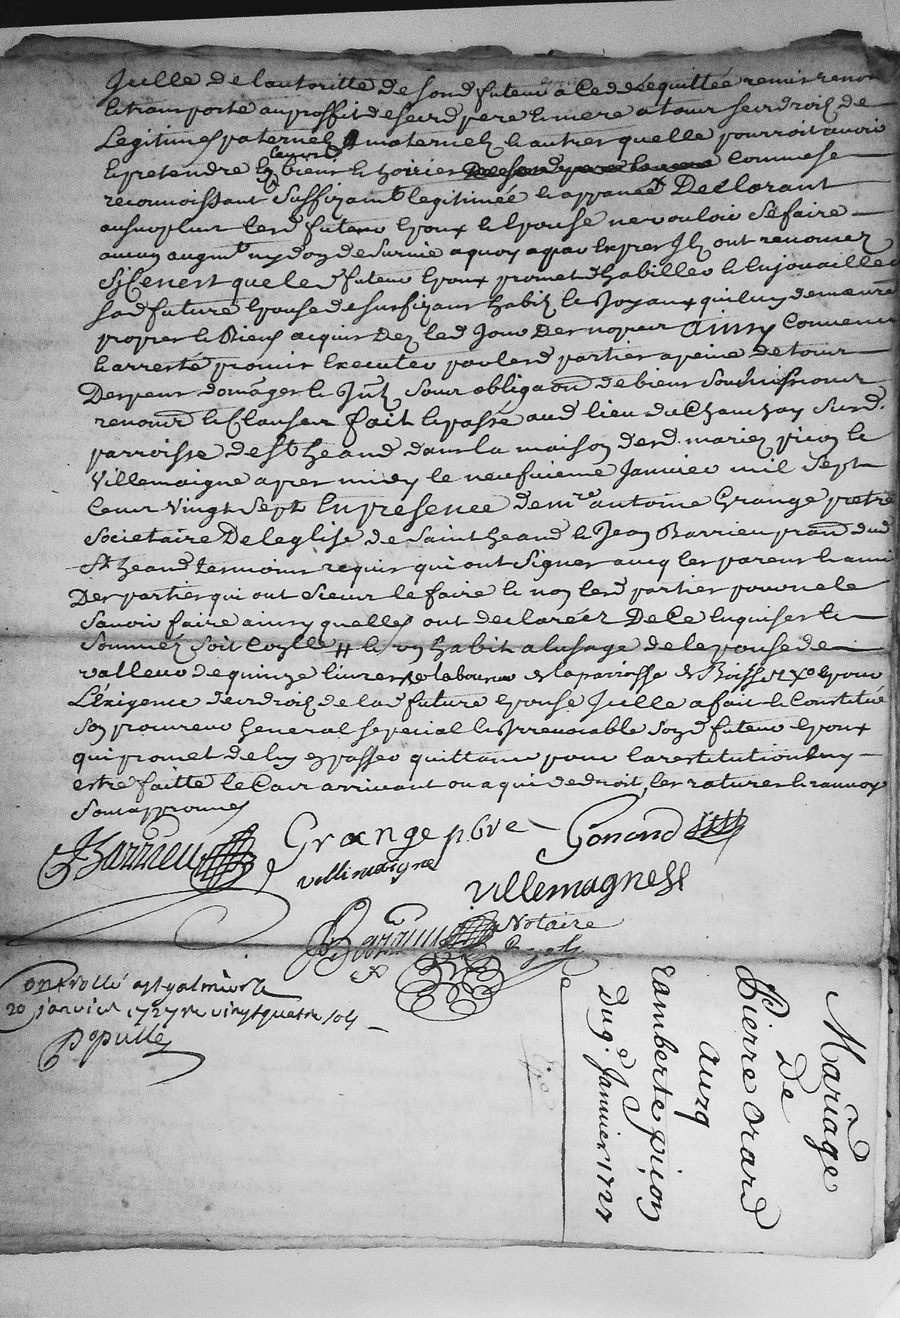 Icelle de lautoritté de sond futeur a Cedé quittée remis renon
et transporté au proffit de sesd pere et mere a tous sesd droitz de
Legitimes paternelz & maternelz et autres quelle pourroit avoir
et pretendre en leurs biens et hoiries comme se
reconnoissant suffizamt legitimée et appanée Declarant
au surplus lesd futeurs Epoux et Epouse ne vouloir se faire
aucun augmt ny don de survie a quoy a par Exprés Ilz ont renoncez
Sy Cenest que led futeur Epoux promet dhabiller et Enjouailler
sad future Epouse de suffizans habitz et Joyaux qui luy demeureront
propres et Biens acquis Dez led Jour Des nopces Ainsy Convenu
et arresté promis Executer par lesd parties a peine de tous
Despens domages et Jnts sous obligaon de biens Soubmissions
renonc et Clauses fait et passé aud lieu du Chauchay sur d.
parroisse de St heand dans la maison desd. mariez pion et
Villemaigne apres midy le neufvieme Janvier mil sept
Cent Vingt Sept En presence de mre antoine Grange pretre
Societaire De leglise de Saint heand et Jean Barrieu dud
St heand tesmoins requis qui ont Signés avecq les parens et amis
Des parties qui ont sceu le faire et non lesd parties pour ne le
Savoir faire ainsy quelles ont declarées De Ce Enquises et
Sommées Soit # et un habit a lusage de lepouse de
valleur de quinze livres laboureur de la parroisse de pour
Lexigence desd droitz de lad future Epouse Icelle a fait et Constitué
Son procureur General special et Irrevocable Sond futeur Epoux
qui promet de luy en passer quittance pour la restitution luy
estre faitte le Cas arrivant ou a qui de droit, les ratures et ranvoy
Sont approuvés
JBarrieu Grange pbre Gonand
villemaigne
Villemagness
Barrieu Notaire
Royal
Controllé a St galmier le
20 janvier 1727 Re vingt quatre sols
Populle
Mariage
De
Pierre Orard
avecq
Lamberte pion
Du 9e Janvier 1727